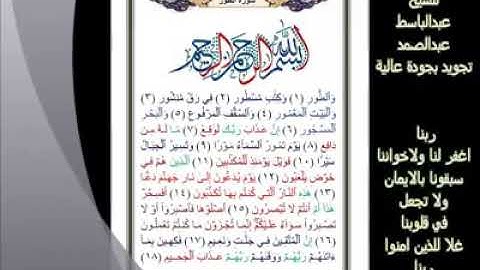 سورة الطور
بسم الله الرحمن الرحيم
وَالطُّورِ (١) وَكِتَابٍ مَّسْطُورٍ (٢) فِي رَقٍّ مَّنشُورٍ (٣)
وَالْبَيْتِ الْمَعْمُورِ (٤) وَالسَّقْفِ الْمَرْفُوعِ (٥) وَالْبَحْرِ
الْمَسْجُورِ (٦) إِنَّ عَذَابَ رَبِّكَ لَوَاقِعٌ (٧) مَا لَهُ مِن
دَافِعٍ (٨) يَوْمَ تَمُورُ السَّمَاءُ مَوْرًا (٩) وَتَسِيرُ الْجِبَالُ
سَيْرًا (١٠) فَوَيْلٌ يَوْمَئِذٍ لِّلْمُكَذِّبِينَ (١١) الَّذِينَ هُمْ فِي
خَوْضٍ يَلْعَبُونَ (١٢) يَوْمَ يُدَعُّونَ إِلَى نَارِ جَهَنَّمَ دَعًّا
(١٣) هَذِهِ النَّارُ الَّتِي كُنتُم بِهَا تُكَذِّبُونَ (١٤) أَفَسِحْرٌ
هَذَا أَمْ أَنتُمْ لَا تُبْصِرُونَ (١٥) اصْلَوْهَا فَاصْبِرُوا أَوْ لَا
تَصْبِرُوا سَوَاءٌ عَلَيْكُمْ إِنَّمَا تُجْزَوْنَ مَا كُنتُمْ تَعْمَلُونَ
(١٦) إِنَّ الْمُتَّقِينَ فِي جَنَّاتٍ وَنَعِيمٍ (١٧) فَاكِهِينَ بِمَا
آتَاهُمْ رَبُّهُمْ وَوَقَاهُمْ رَبُّهُمْ عَذَابَ الْجَحِيمِ (١٨)
عبدالباسط
عبدالصمد
تجويد بجودة عالية
ربنا
اغفر لنا ولاخواننا
سبقونا بالايمان
ولا تجعل
في قلوبنا
غلا للذين امنوا
ربنا